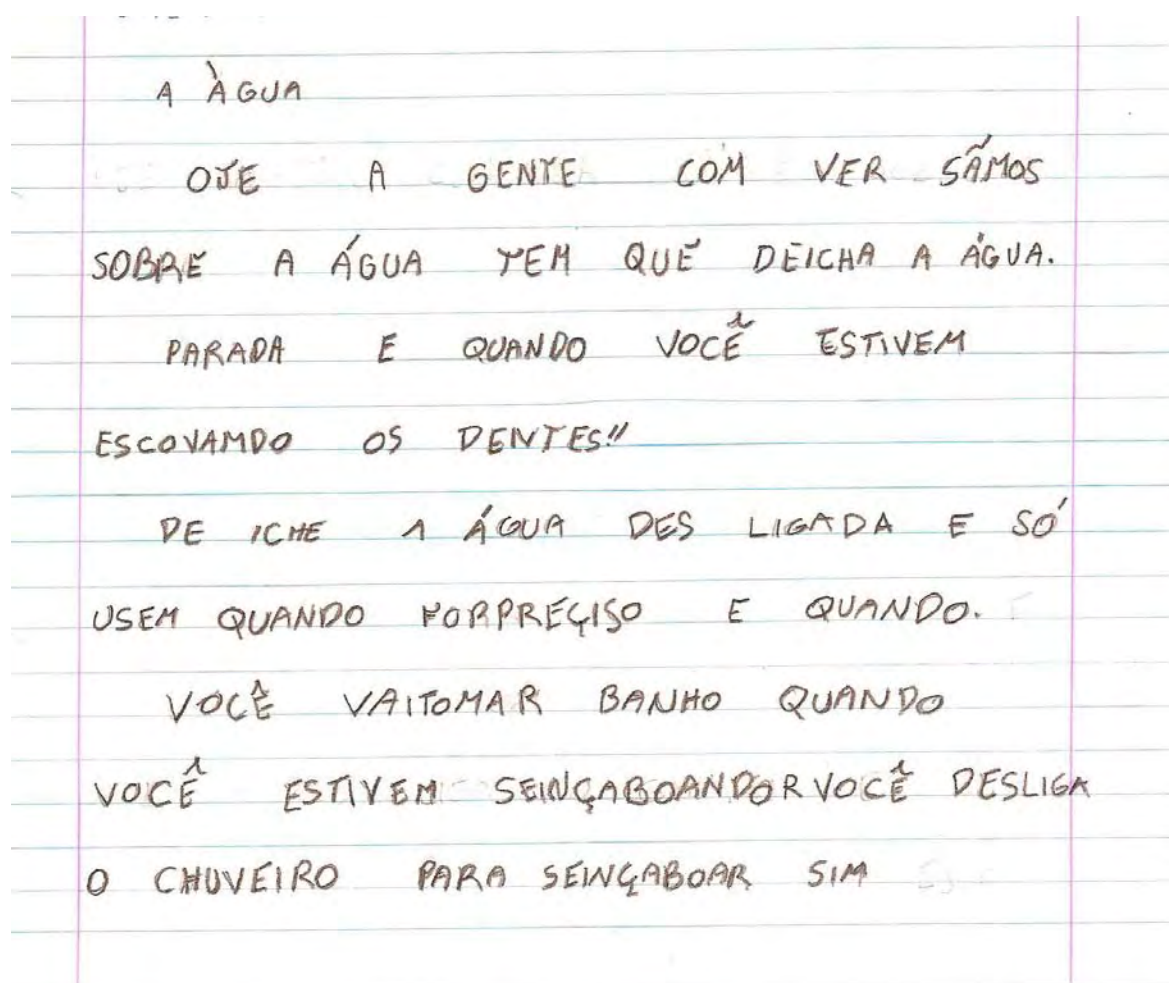 A ÀGUA
OJE A GENTE COM VER SÃMOS
SOBRE A ÁGUA TEM QUE DEICHA A ÁGUA.
PARADA E QUANDO VOCÊ ESTIVEM
ESCOVAMDO OS DENTES!!
DE ICHE A ÁGUA DES LIGADA E SÓ
USEM QUANDO FORPREÇISO E QUANDO.
VOCÊ VAITOMAR BANHO QUANDO
VOCÊ ESTIVEM SEINÇABOANDOR VOCÊ DESLIGA
O CHUVEIRO PARA SEINÇABOAR SIM